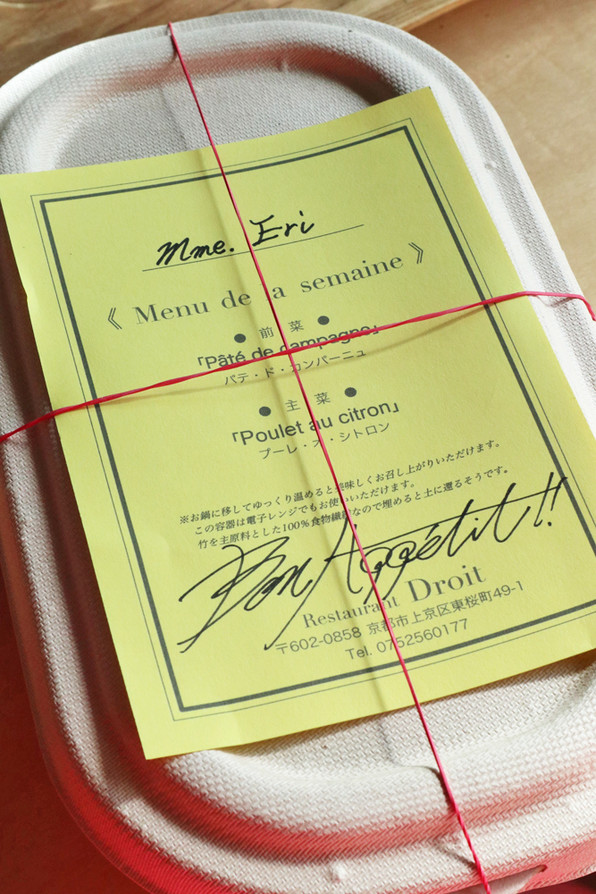 Mme. Eri
《 Menu de la semaine 》
● 前 菜 ●
「Pâté de campagne」
パテ・ド・カンパーニュ
● 主 菜 ●
「Poulet au citron」
プーレ・オ・シトロン
※お鍋に移してゆっくり温めると美味しくお召し上がりいただけます。
この容器は電子レンジでもお使いいただけます。
竹を主原料とした100%食物繊維なので埋めると土に還るそうです。
Bon Appétit!!
Restaurant Droit
〒602-0858 京都市上京区東桜町49-1
Tel. 0752560177